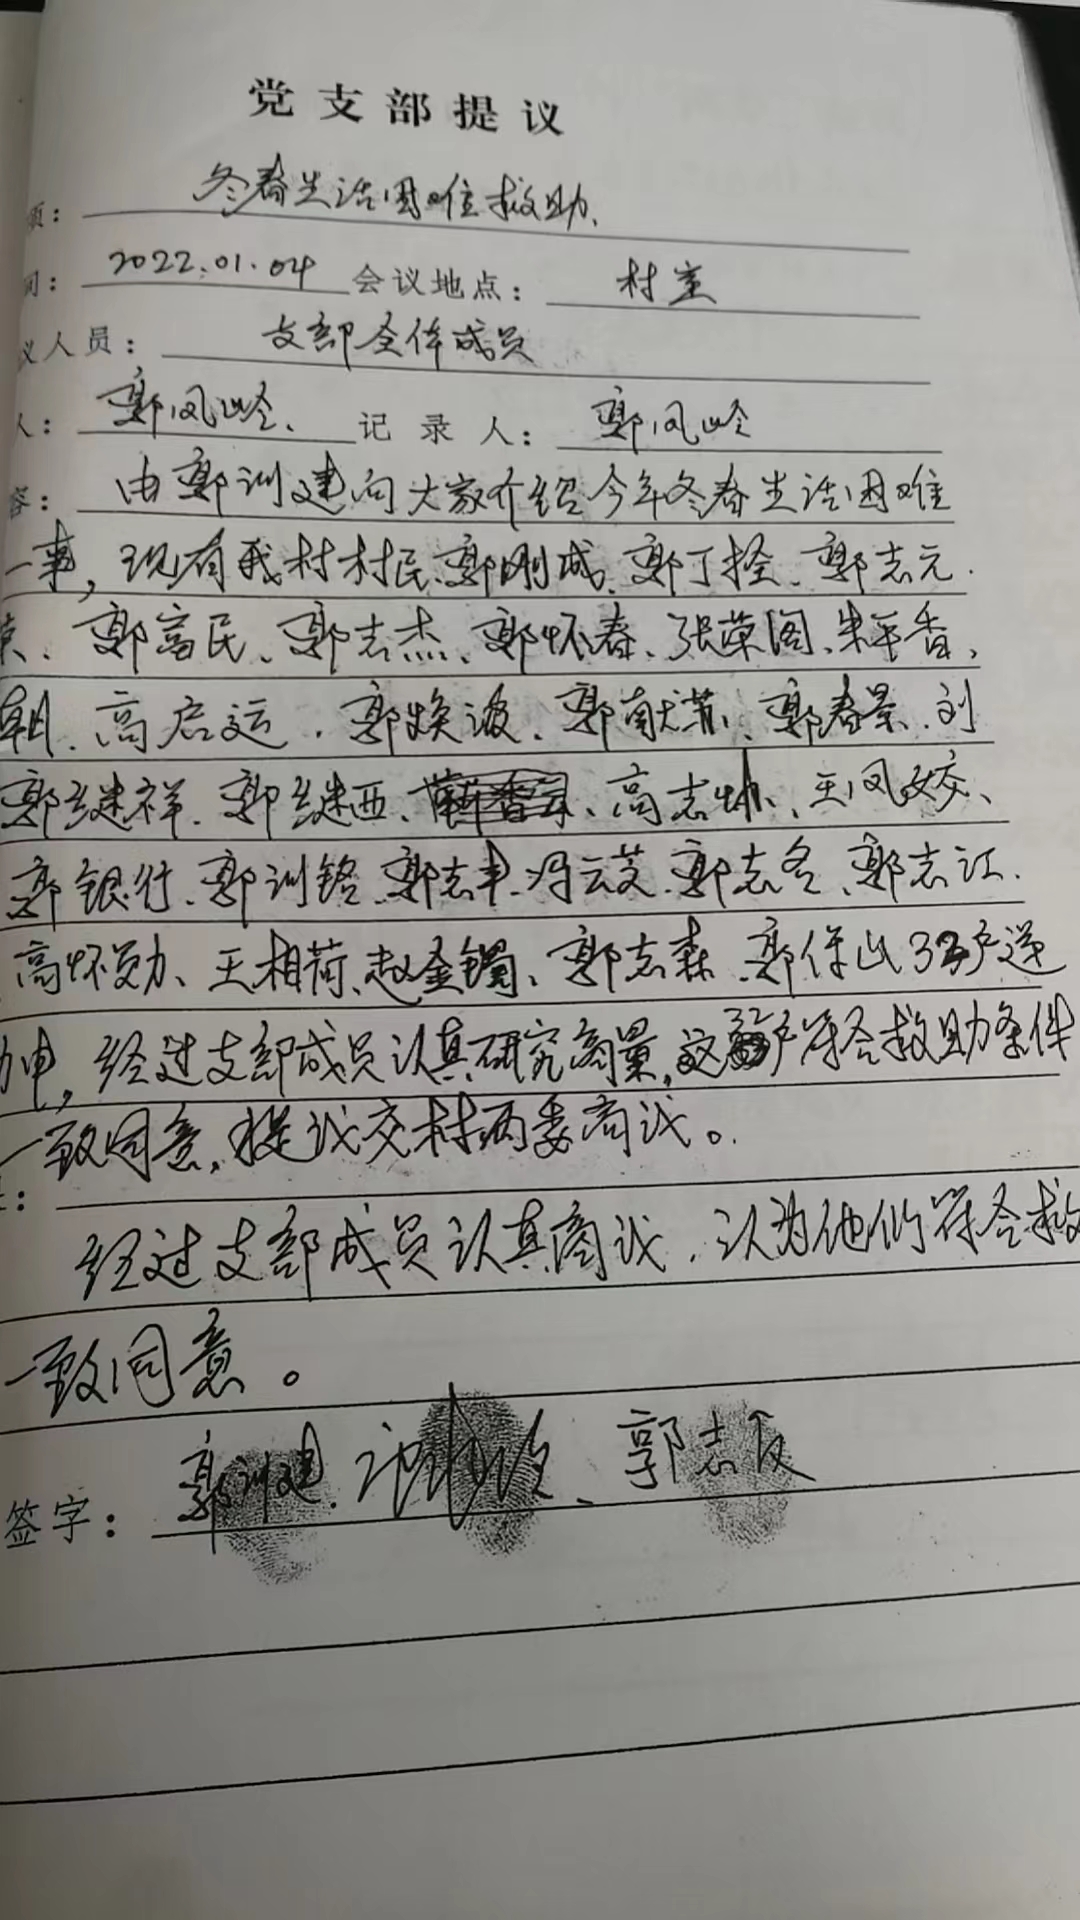 党支部提议
项： 冬春生活困难救助、
间： 2022.01.04 会议地点： 村室
议人员： 支部全体成员
人： 郭凤岭、 记录人： 郭凤岭
容： 由郭训建向大家介绍今年冬春生活困难
一事，现有我村村民、郭刚成、郭丁拴、郭志元、
、郭富民、郭志杰、郭怀春、张荣阁、朱苹香、
朝、高启运、郭焕波、郭献菲、郭春景、刘
郭继祥、郭继西、高志坤、王凤姣、
郭银行、郭训铭、郭志丰、冯云芝、郭志冬、郭志江、
高怀勋、王相荷、赵金镯、郭志森、郭保山32户递
申，经过支部成员认真研究商量，这32户符合救助条件
一致同意，提议交村两委商议。
：
经过支部成员认真商议，认为他们符合救
一致同意。
签字： 郭训建、 、郭志